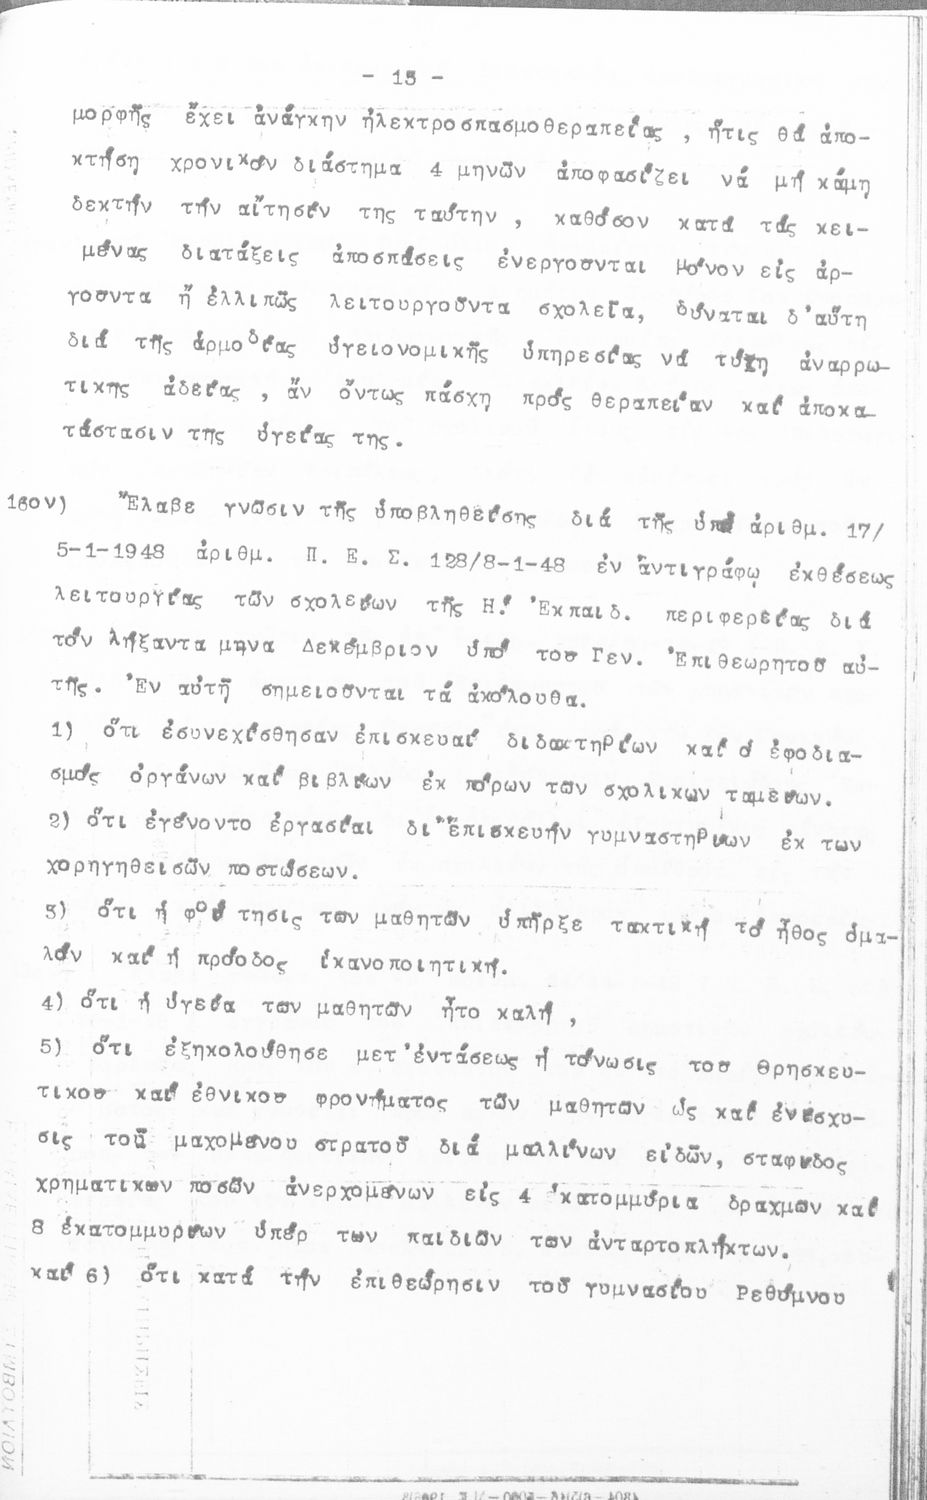 - 15 -
μορφῆς ἔχει ἀνάγκην ἠλεκτροσπασμοθεραπείας , ἥτις θά ἀπο-
κτήσῃ χρονικόν διάστημα 4 μηνῶν ἀποφασίζει νά μή κάμῃ
δεκτήν τήν αἴτησίν της ταύτην , καθόσον κατά τάς κει-
μένας διατάξεις ἀποσπάσεις ἐνεργοῦνται μόνον εἰς ἀρ-
γοῦντα ἤ ἐλλιπῶς λειτουργοῦντα σχολεῖα, δύναται δ'αὕτη
διά τῆς ἁρμοδίας ὑγειονομικῆς ὑπηρεσίας νά τύχῃ ἀναρρω-
τικῆς ἀδείας , ἄν ὄντως πάσχῃ πρός θεραπείαν καί ἀποκα-
τάστασιν τῆς ὑγείας της.
16ον) Ἔλαβε γνῶσιν τῆς ὑποβληθείσης διά τῆς ὑπ' ἀριθμ. 17/
5-1-1948 ἀριθμ. Π. Ε. Σ. 128/8-1-48 ἐν ἀντιγράφῳ ἐκθέσεως
λειτουργίας τῶν σχολείων τῆς Η! Ἐκπαιδ. περιφερείας διά
τόν λήξαντα μῆνα Δεκέμβριον ὑπό τοῦ Γεν. Ἐπιθεωρητοῦ αὐ-
τῆς. Ἐν αὐτῇ σημειοῦνται τά ἀκόλουθα.
1) ὅτι ἐσυνεχίσθησαν ἐπισκευαί διδακτηρίων καί ὁ ἐφοδια-
σμός ὀργάνων καί βιβλίων ἐκ πόρων τῶν σχολικῶν ταμείων.
2) ὅτι ἐγένοντο ἐργασίαι δι' ἐπισκευήν γυμναστηρίων ἐκ τῶν
χορηγηθεισῶν πιστώσεων.
3) ὅτι ἡ φοίτησις τῶν μαθητῶν ὑπῆρξε τακτική τό ἦθος ὁμα-
λόν καί ἡ πρόοδος ἱκανοποιητική.
4) ὅτι ἡ ὑγεία τῶν μαθητῶν ἦτο καλή ,
5) ὅτι ἐξηκολούθησε μετ'ἐντάσεως ἡ τόνωσις τοῦ θρησκευ-
τικοῦ καί ἐθνικοῦ φρονήματος τῶν μαθητῶν ὡς καί ἐνίσχυ-
σις τοῦ μαχομένου στρατοῦ διά μαλλίνων εἰδῶν, σταφίδος
χρηματικῶν ποσῶν ἀνερχομένων εἰς 4 ἑκατομμύρια δραχμῶν καί
8 ἑκατομμυρίων ὑπέρ τῶν παιδιῶν τῶν ἀνταρτοπλήκτων.
καί 6) ὅτι κατά τήν ἐπιθεώρησιν τοῦ γυμνασίου Ρεθύμνου